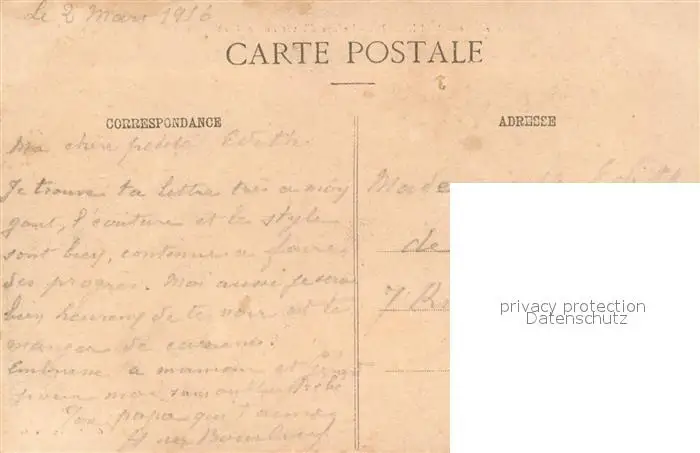 Le 2 Mars 1916
CARTE POSTALE
CORRESPONDANCE
ADRESSE
Ma chère petite Edith.
Je trouve ta lettre très
l'écriture et le style
sont bien, continue a faire
des progrès. Moi aussi je serai
bien heureux de te voir et te
manger de caresses.
Embrasse a maman et
pour moi sans oublier Bébé
Ton papa qui t'aime
Made Edith
de
7 R
privacy protection
Datenschutz